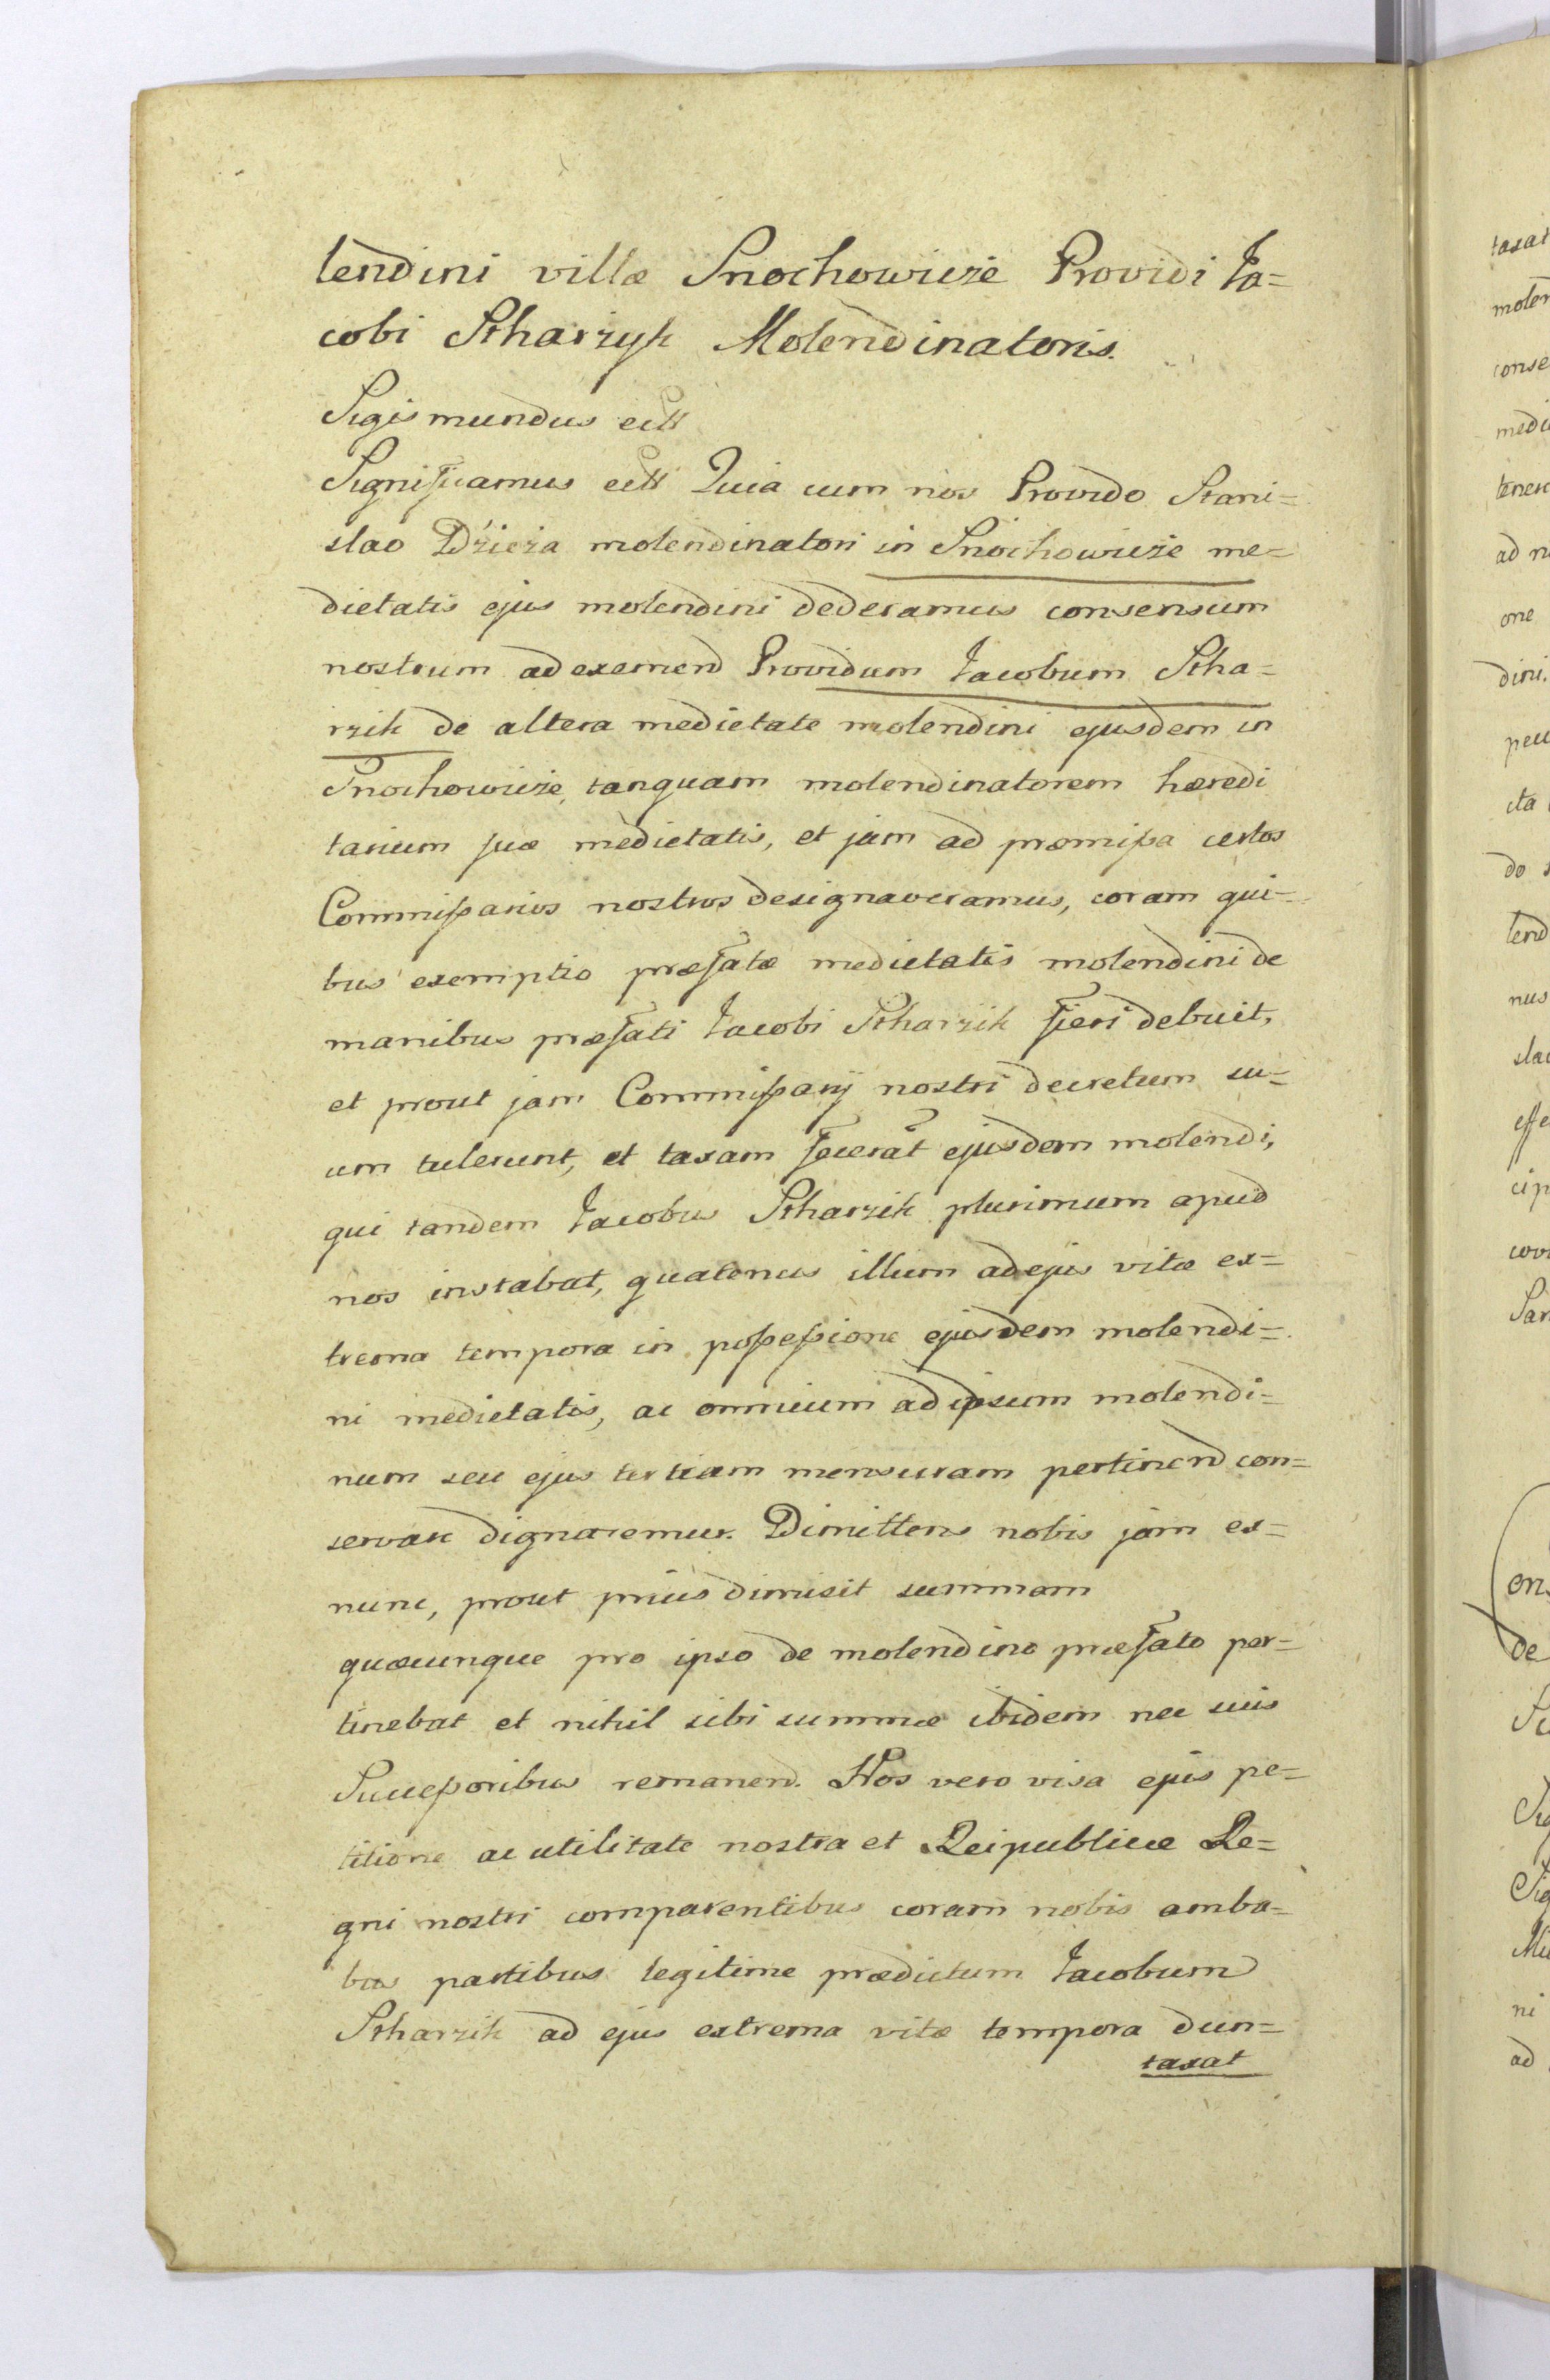 lendini villæ Snochowicze Providi Ja=
cobi Stharzyk Molendinatoris.
Sigismundus ectt
Significamus ectt Quia cum nos Provido Stani=
slao Dzieza molendinatori in Snochowicze me=
dietatis ejus molendini dederamus consensum
nostrum ad exemend Providum Jacobum Stha=
rzik de altera medietate molendini ejusdem in
Snochowicze, tanquam molendinatorem hæredi
tarium suæ medietatis, et jam ad præmissa certos
Commissarios nostros designaveramus, coram qui=
bus exemptio præfatæ medietatis molendini de
manibus præfati Jacobi Stharzik fieri debuit,
et prout jam Commissarij nostri decretum su=
um tulerunt, et taxam fecerat ejusdem molendi,
qui tandem Jacobus Stharzik plurimum apud
nos instabat, quatenus illum ad ejus vitæ ex=
trema tempora in possessione ejusdem molendi=
ni medietatis, ac omnium ad ipsum molendi=
num seu ejus tertiam mensuram pertinend con=
servare dignaremur. Dimittens nobis jam ex=
nunc, prout prius dimisit summam
quæcunque pro ipso de molendino præfato per=
tinebat et nihil sibi summæ ibidem nec suis
Successoribus remanend. Nos vero visa ejus pe=
titione ac utilitate nostra et Reipublicæ Re=
gni nostri comparentibus coram nobis amba=
bus partibus legitime prædictum Jacobum
Stharzik ad ejus extrema vitæ tempora dun=
taxat